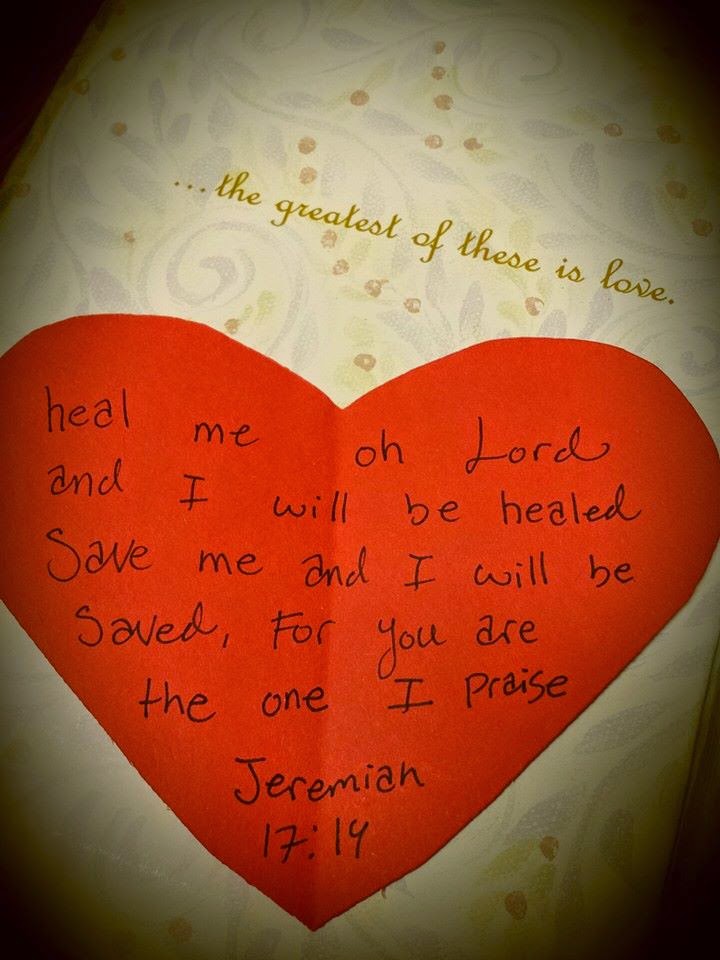 ...the greatest of these is love.
heal me oh Lord
and I will be healed
Save me and I will be
Saved, For you are
the one I praise
Jeremiah
17:14